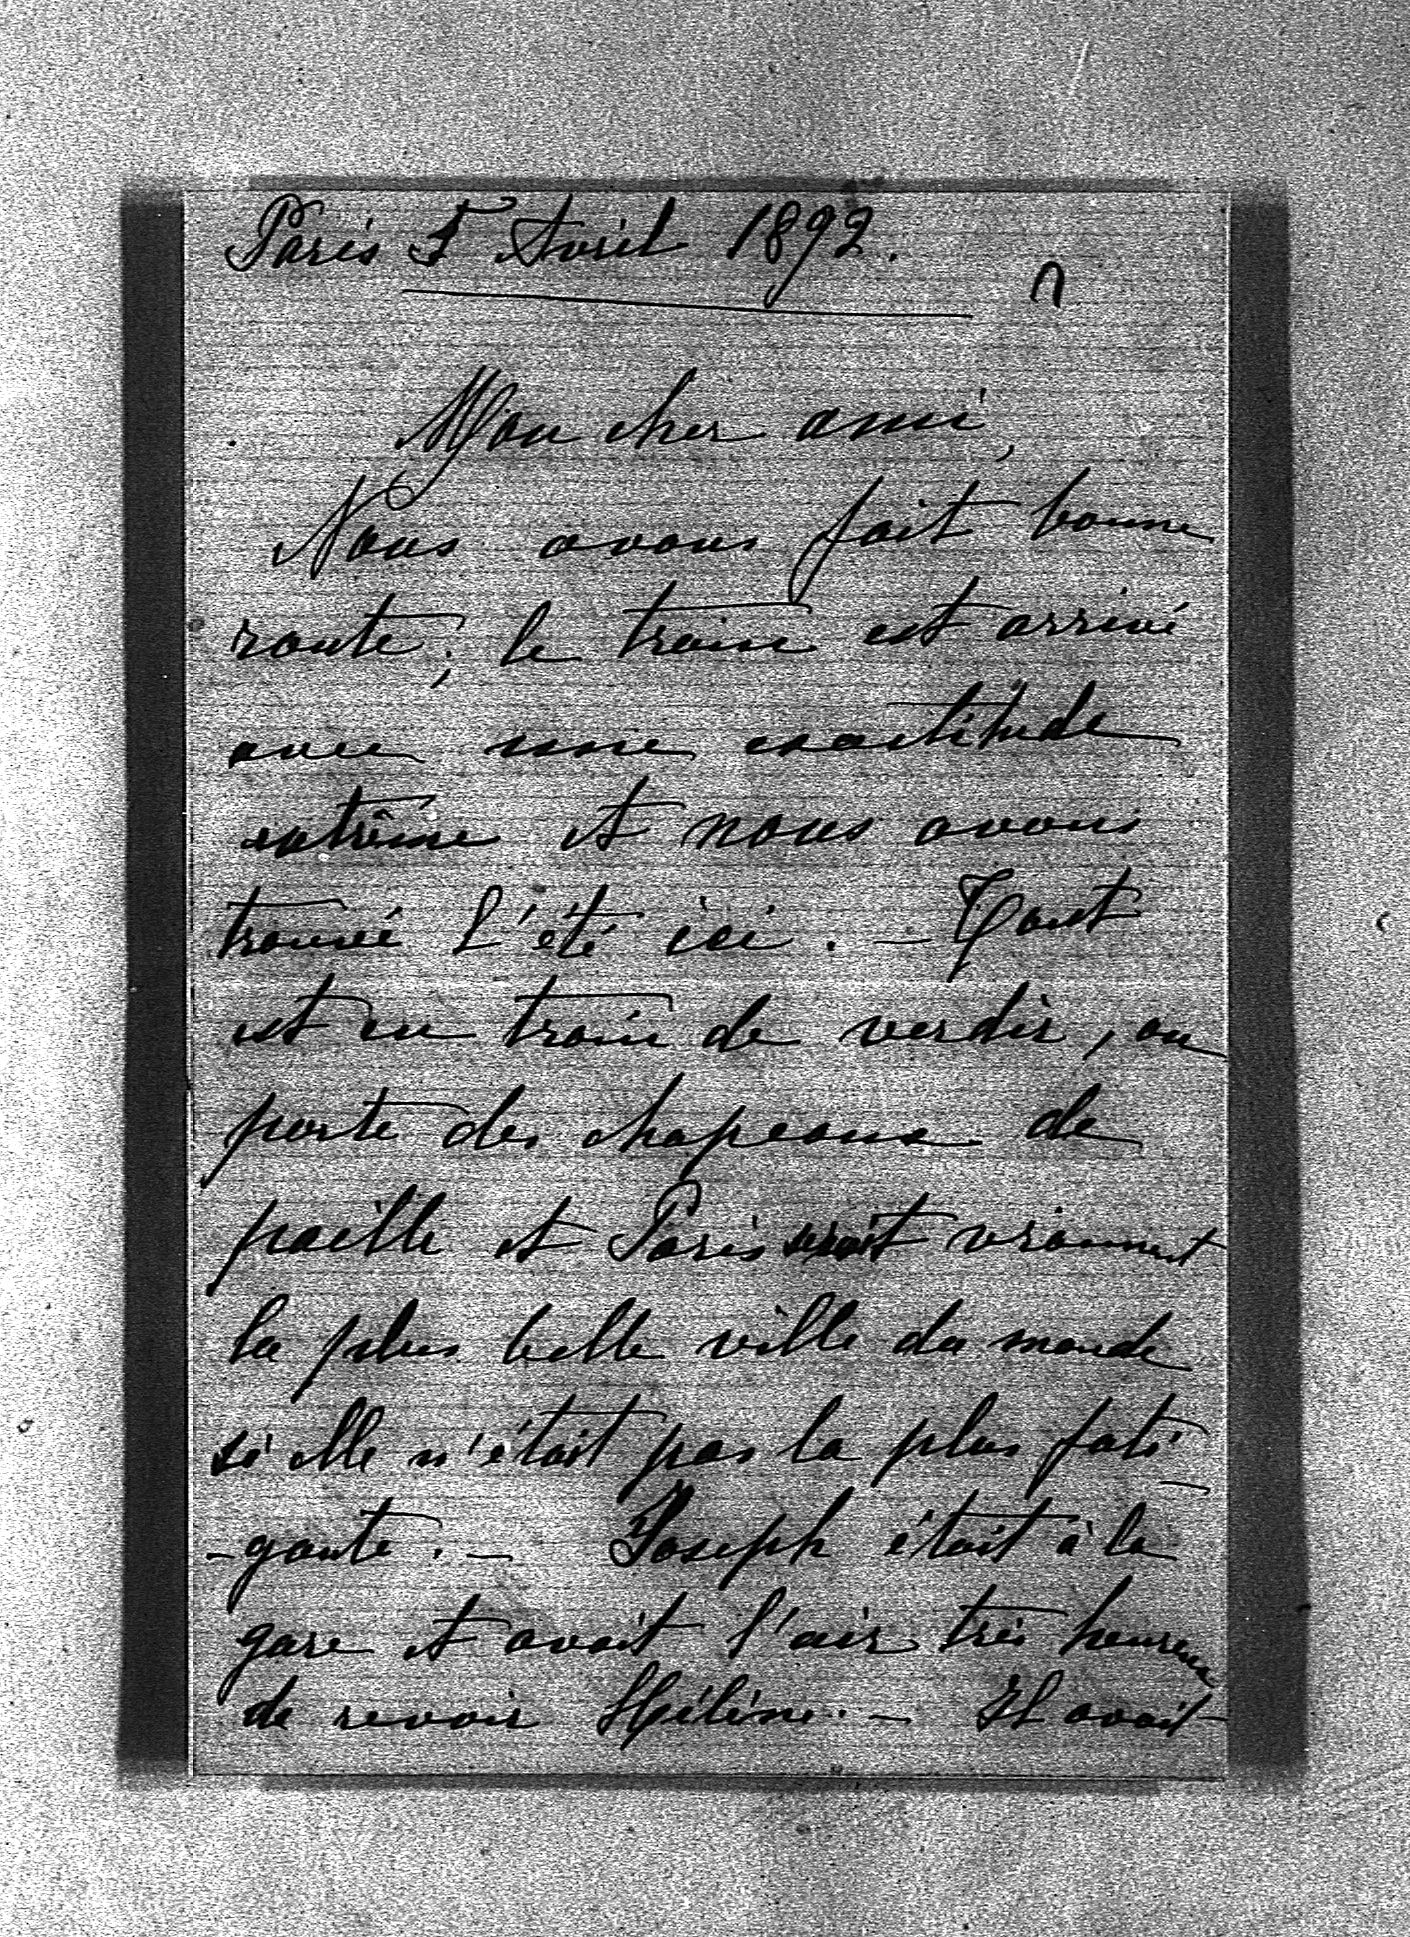 Paris 5 Avril 1892.
Mon cher ami,
Nous avons fait bonne
route ; le train est arrivé
avec une exactitude
extrême et nous avons
trouvé l'été ici. — Tout
est en train de verdir, on
porte des chapeaux de
paille et Paris serait vraiment
la plus belle ville du monde
si elle n'était pas la plus fati-
-gante. — Joseph était à la
gare et avait l'air très heureux
de revoir Hélène. — Il avait